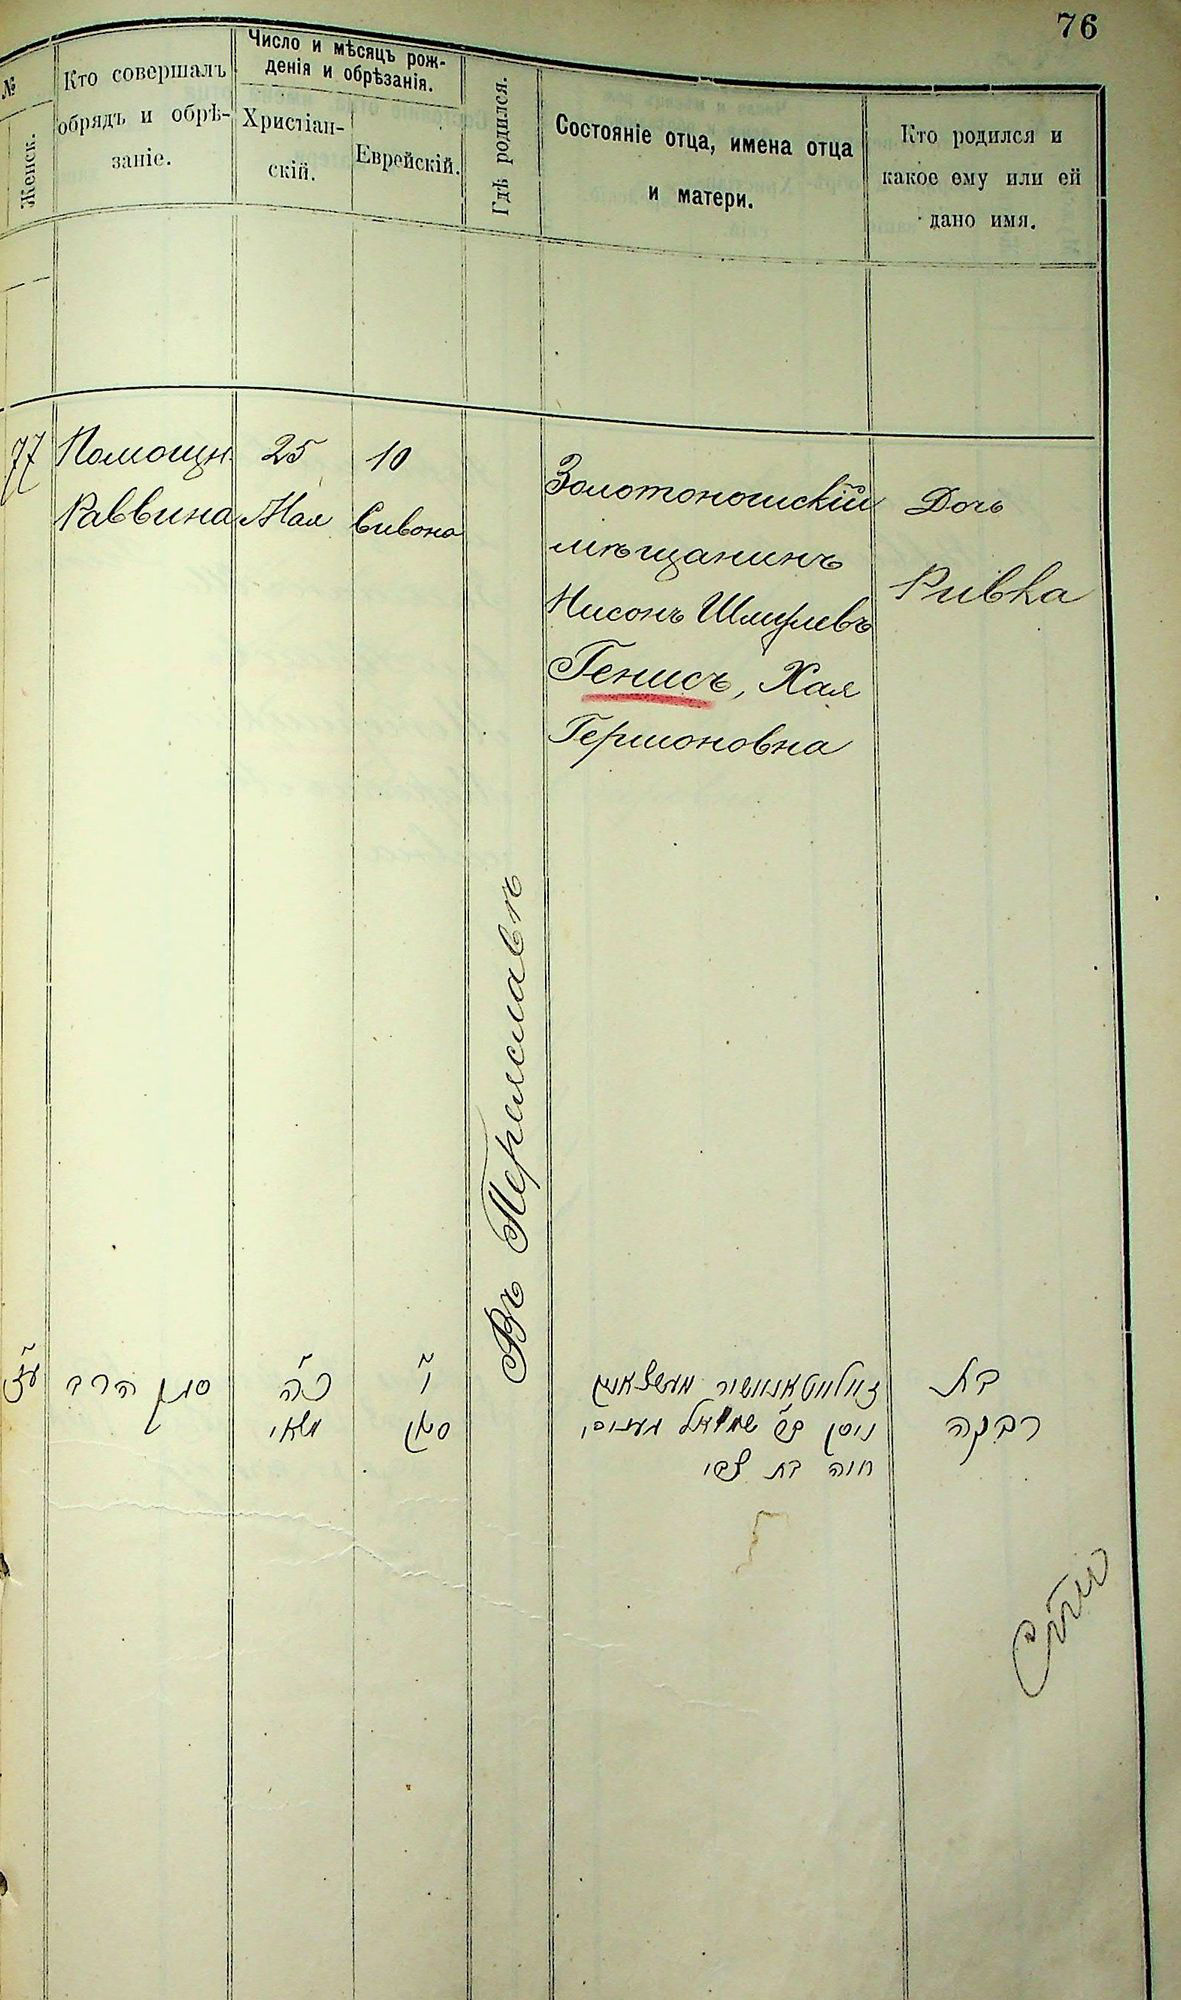 76
№
Женск.
Кто совершалъ
обрядъ и обрѣ-
заніе.
Число и мѣсяцъ рож-
денія и обрѣзанія.
Христіан-
скій.
Еврейскій.
Гдѣ родился.
Состояніе отца, имена отца
и матери.
Кто родился и
какое ему или ей
дано имя.
77
Помощн.
Раввина
25
Мая
10
Сивона
Въ Переяславѣ
Золотоношскій
мѣщанинъ
Нисонъ Шмулевъ
Генисъ, Хая
Гершоновна
Дочь
Ривка
עז
סגן הרב
כה
מאי
י
סיון
ניסן שמואל
חוה בת צבי
בת
רבקה